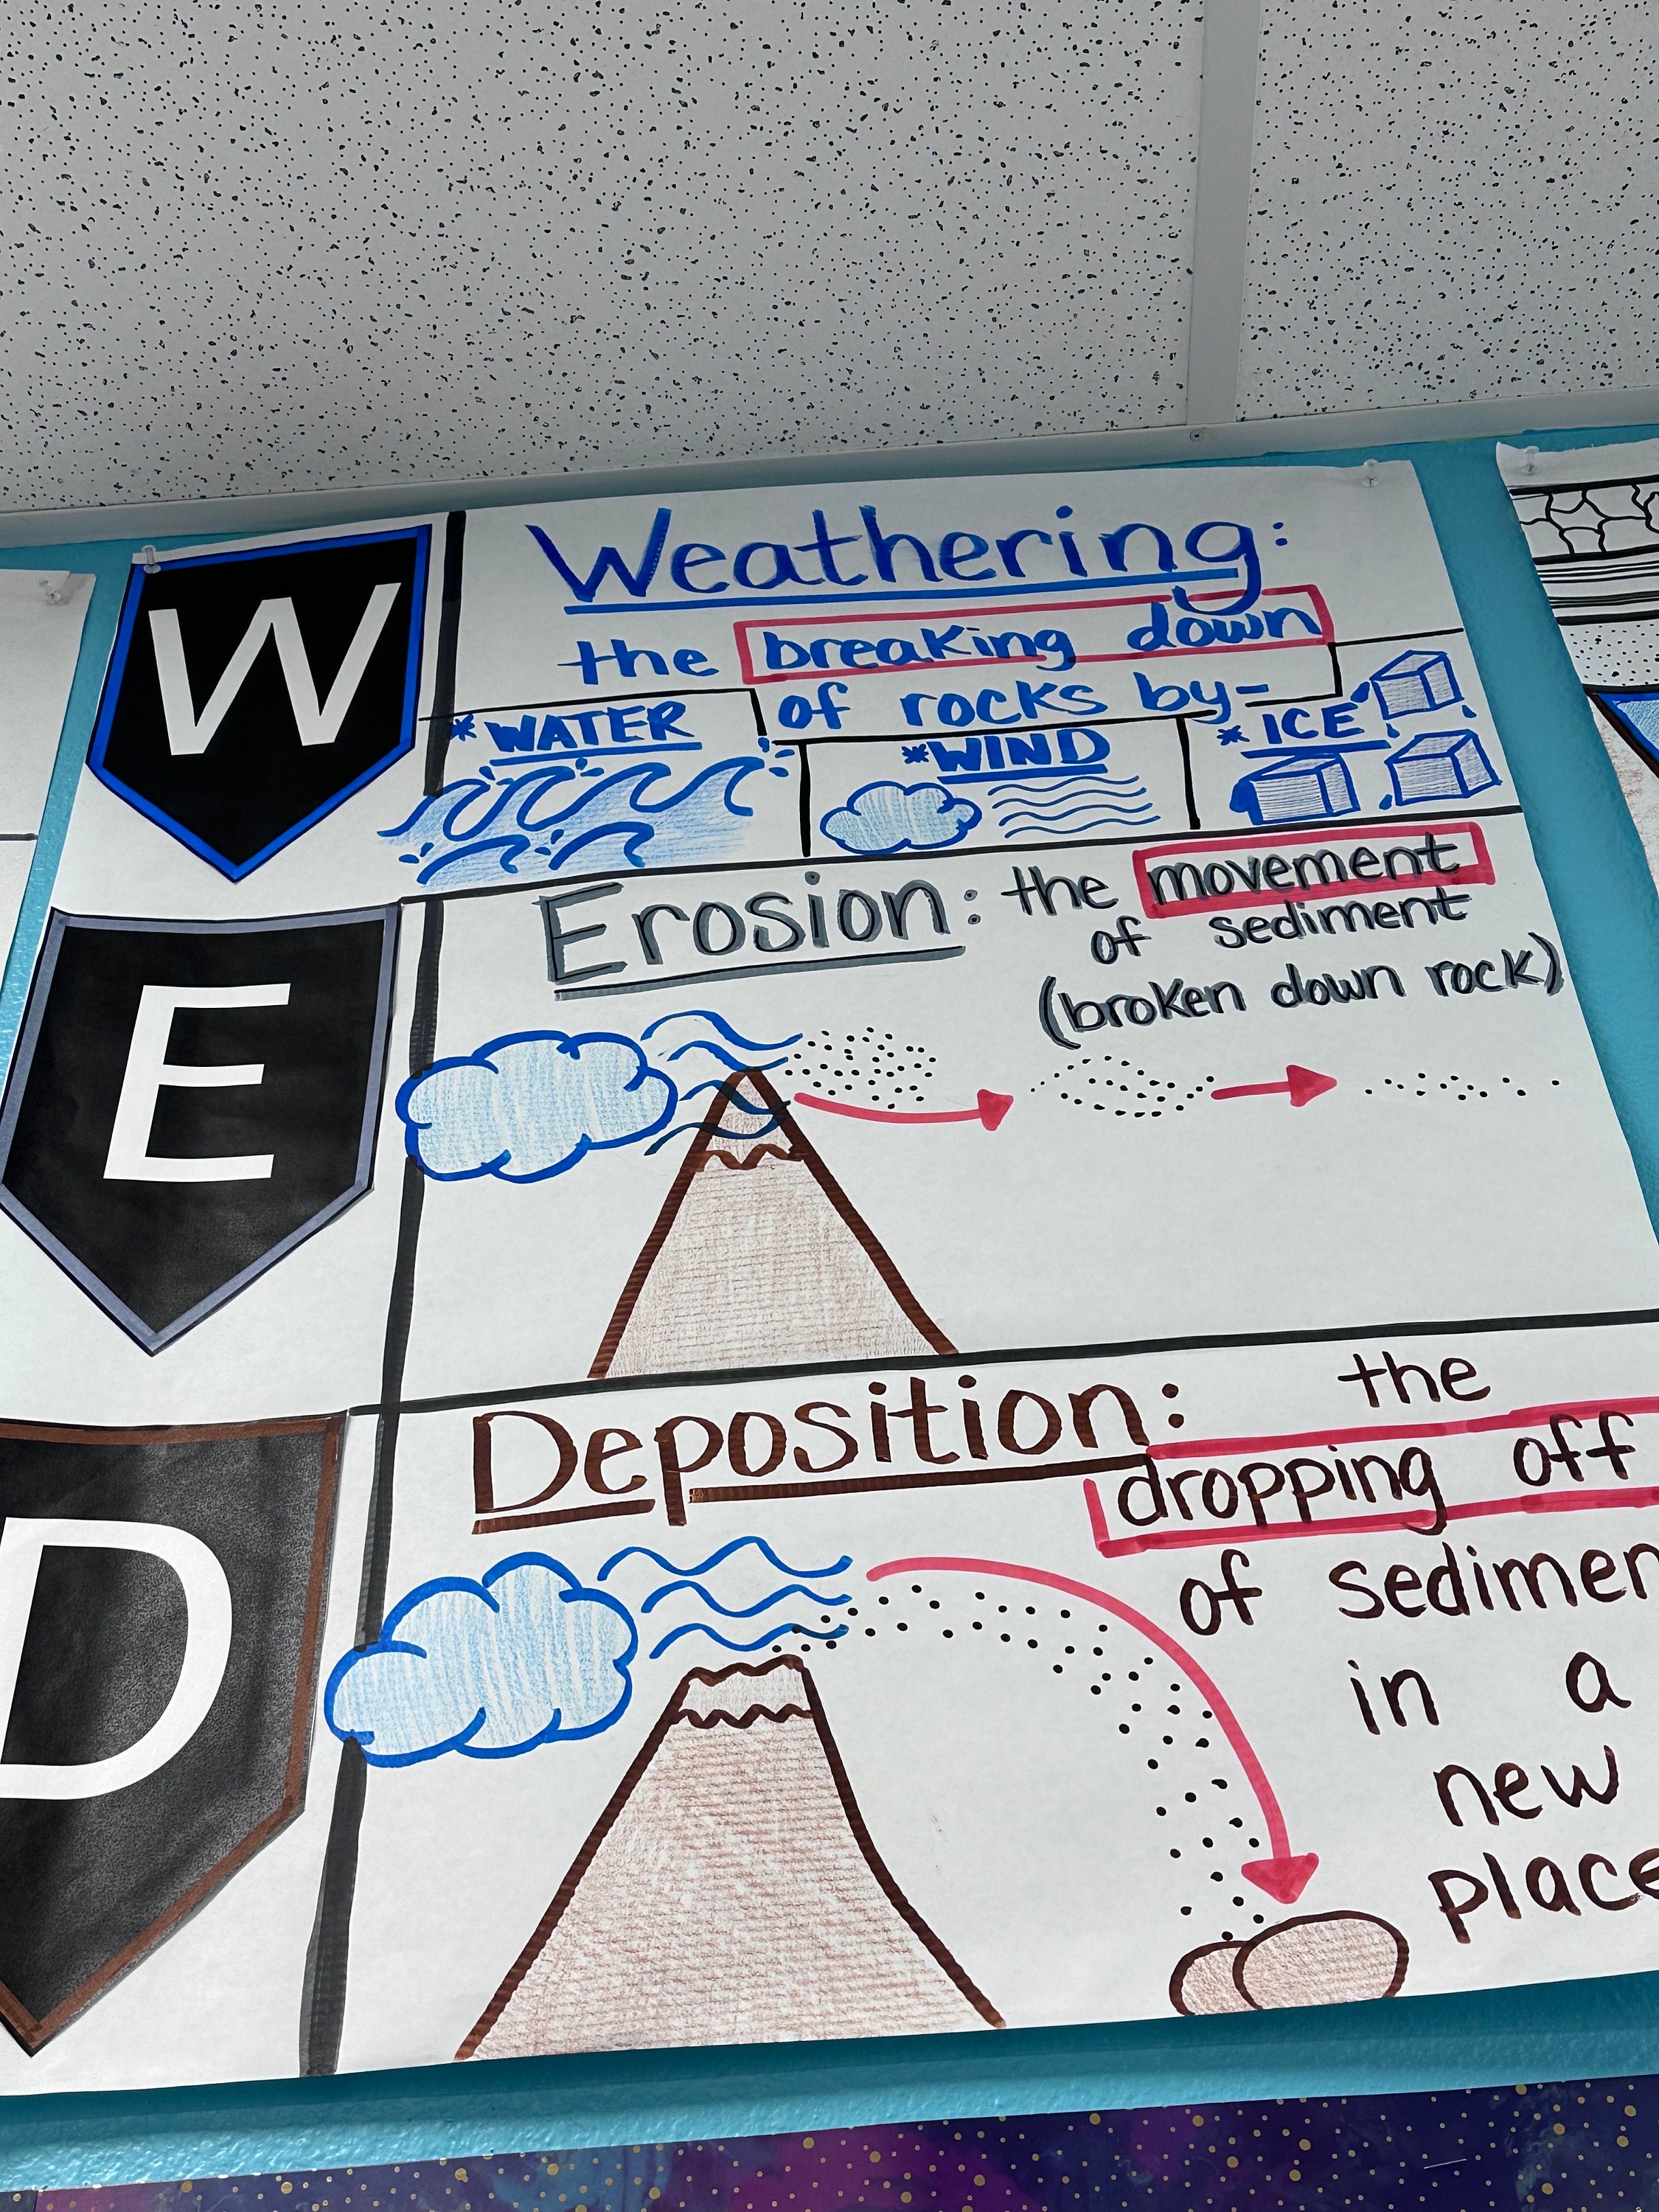 W
Weathering:
the breaking down
of rocks by-
* WATER
* WIND
* ICE
E
Erosion: the movement
of sediment
(broken down rock)
D
Deposition: the
dropping off
of sedimen
in a
new
place